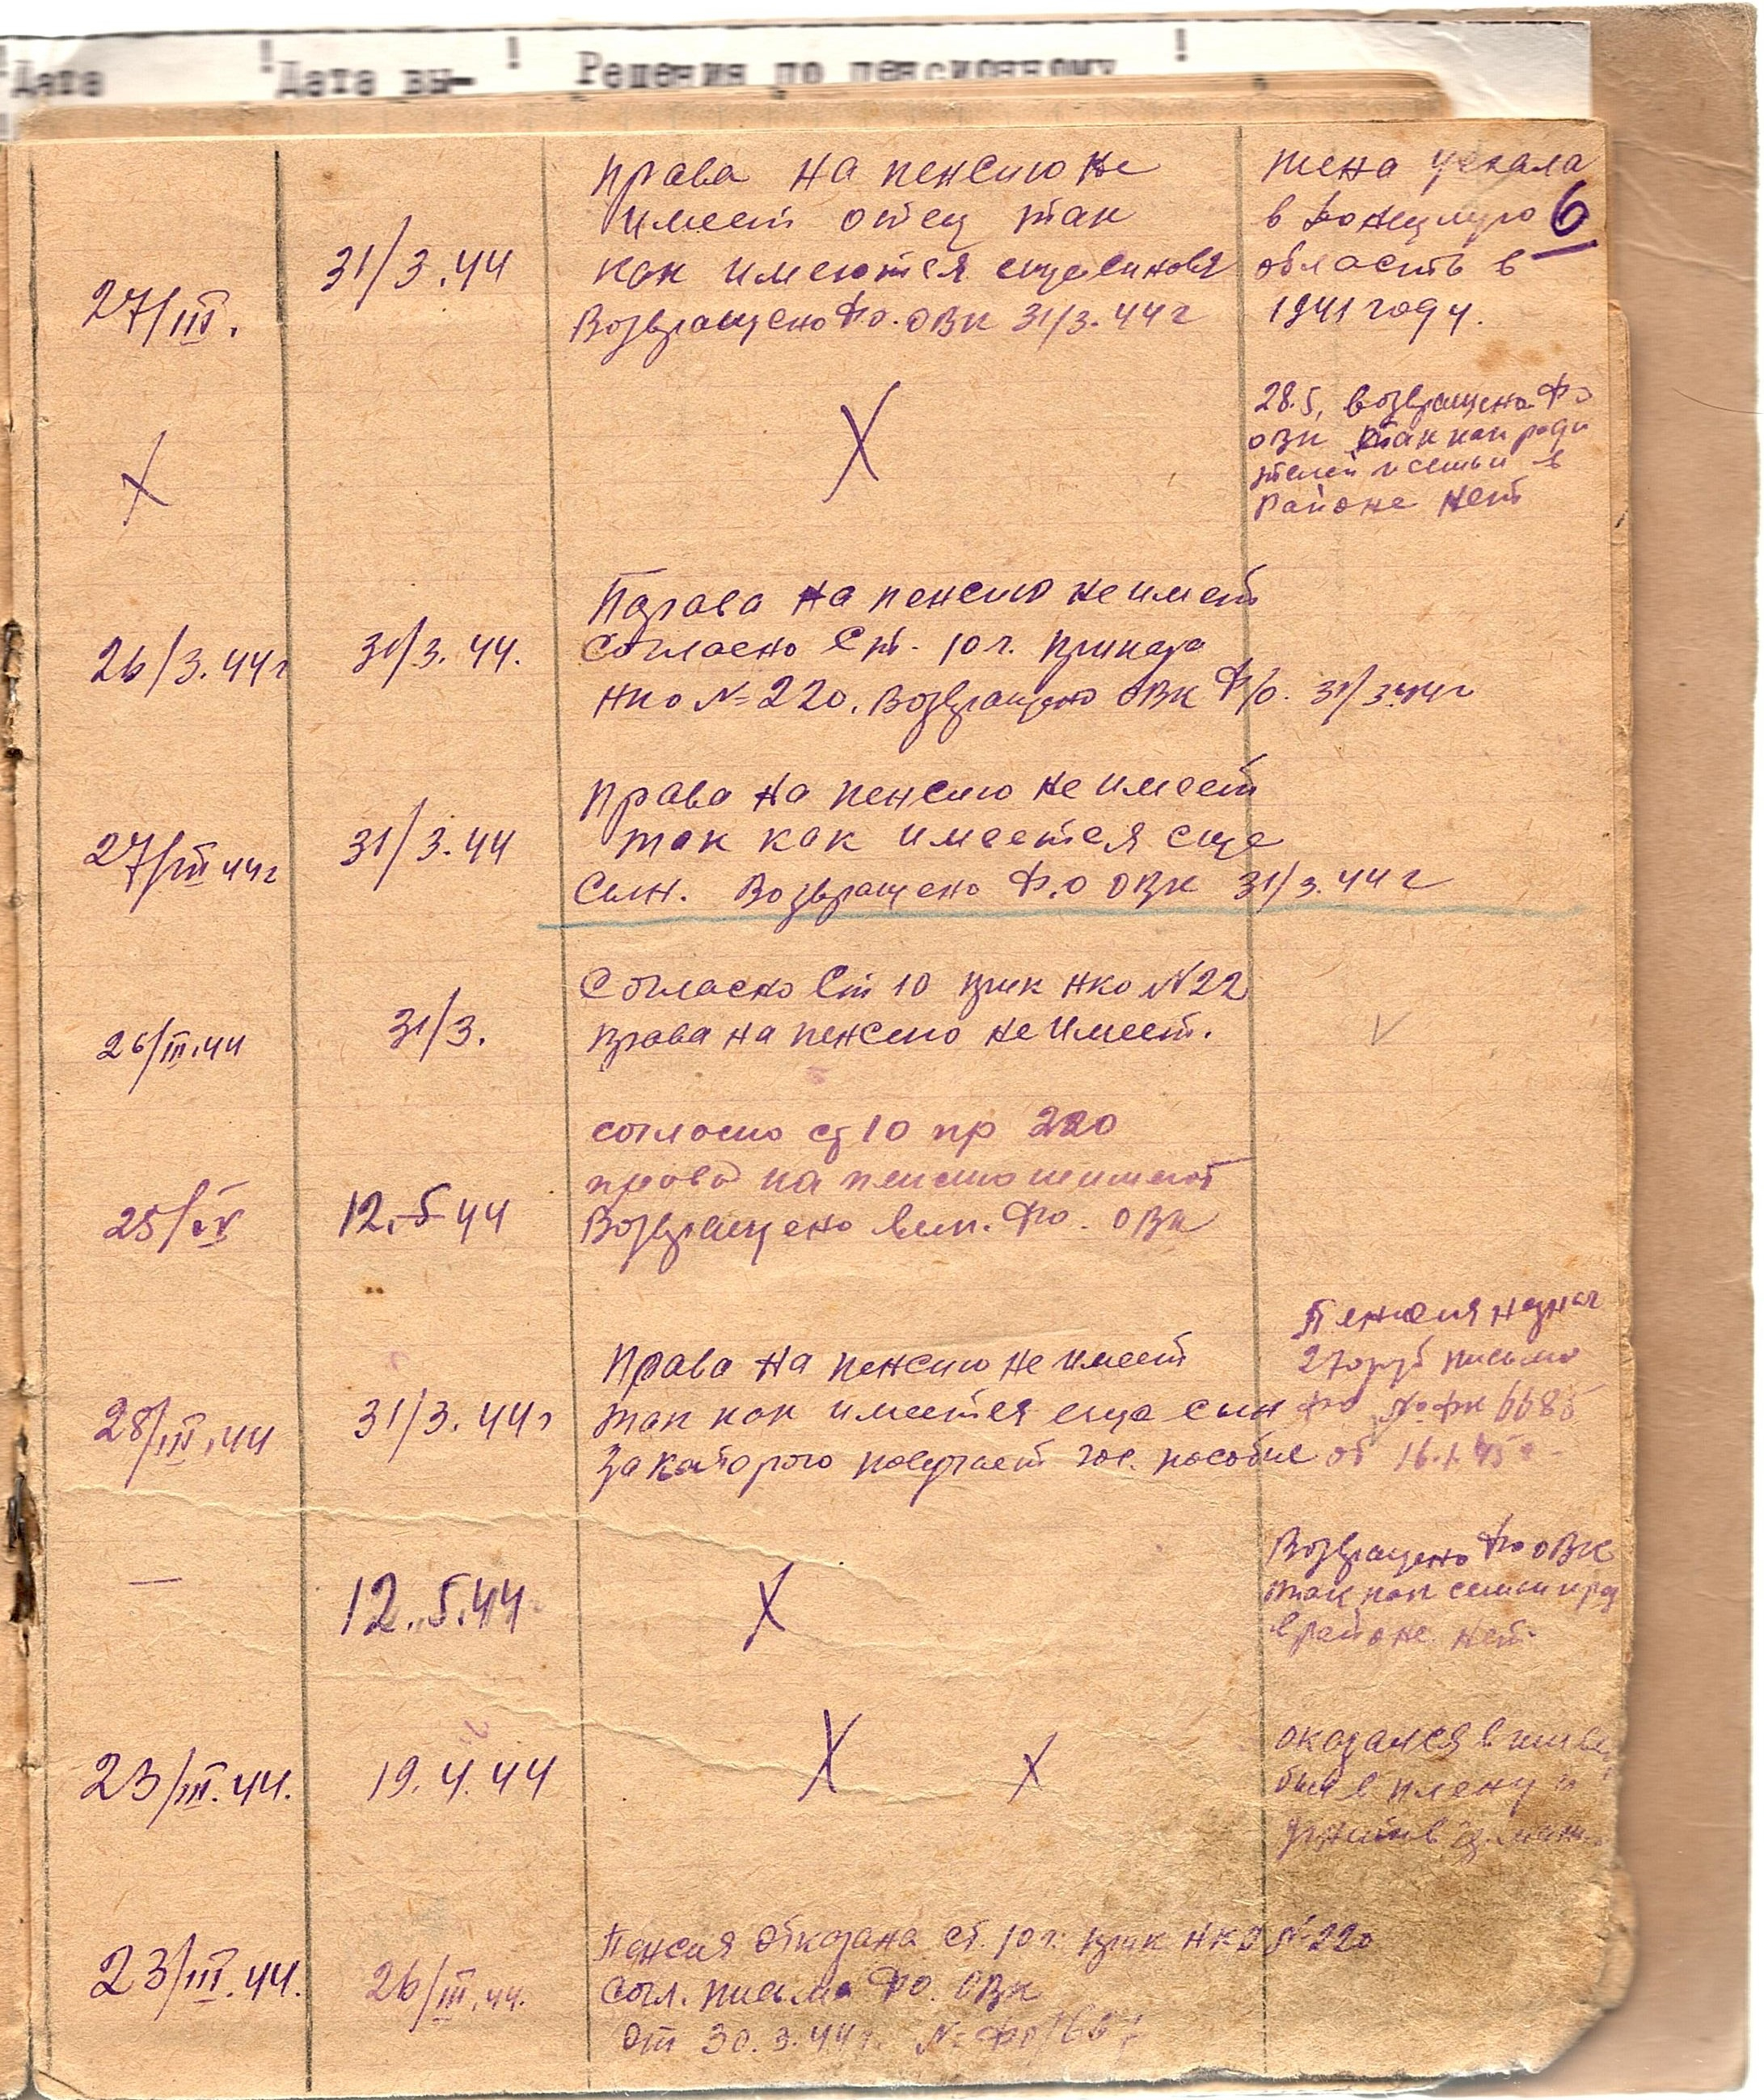 Дата Дата вы- Решения по пенсионному
6
27/III.
31/3.44
права на пенсию не
имеет отец так
как имеются еще сыновя
Возвращено Ф.о. ОВК 31/3.44г
жена уехала
в
область в
1941 году.
X
X
28.5. возвращено Фо
ОВК так как роди
телей и семьи в
Районе нет
26/3.44г
31/3.44.
Права на пенсию не имеет
Согласно Ст. 10 г. приказа
НКО №220. Возвращено ОВК Ф/о. 31/3.44г
27/III 44г
31/3.44
Права на пенсию не имеет
так как имеется еще
Сын. Возвращено Ф.О ОВК 31/3.44г
26/III.44
31/3.
Согласно Ст 10 прик НКО №22
права на пенсию не имеет.
25/IV
12.5 44
согласно ст 10 пр 220
права на пенсию не имеет
Возвращено вып. Фо. ОВК
28/III.44
31/3.44г
Права на пенсию не имеет
так как имеется еще сын
за которого получает гос. пособие
Пенсия назнач
270 руб письмо
от 16.1.45г
—
12.5.44
X
Возвращено Фо ОВК
так как семьи
в районе нет.
23/III.44.
19.4.44
X X
оказался в
был в плену и
23/III.44.
26/III.44.
Пенсия отказана ст. 10 г. прик НКО №220
согл. письма ФО. ОВК
от 30.3.44г. №